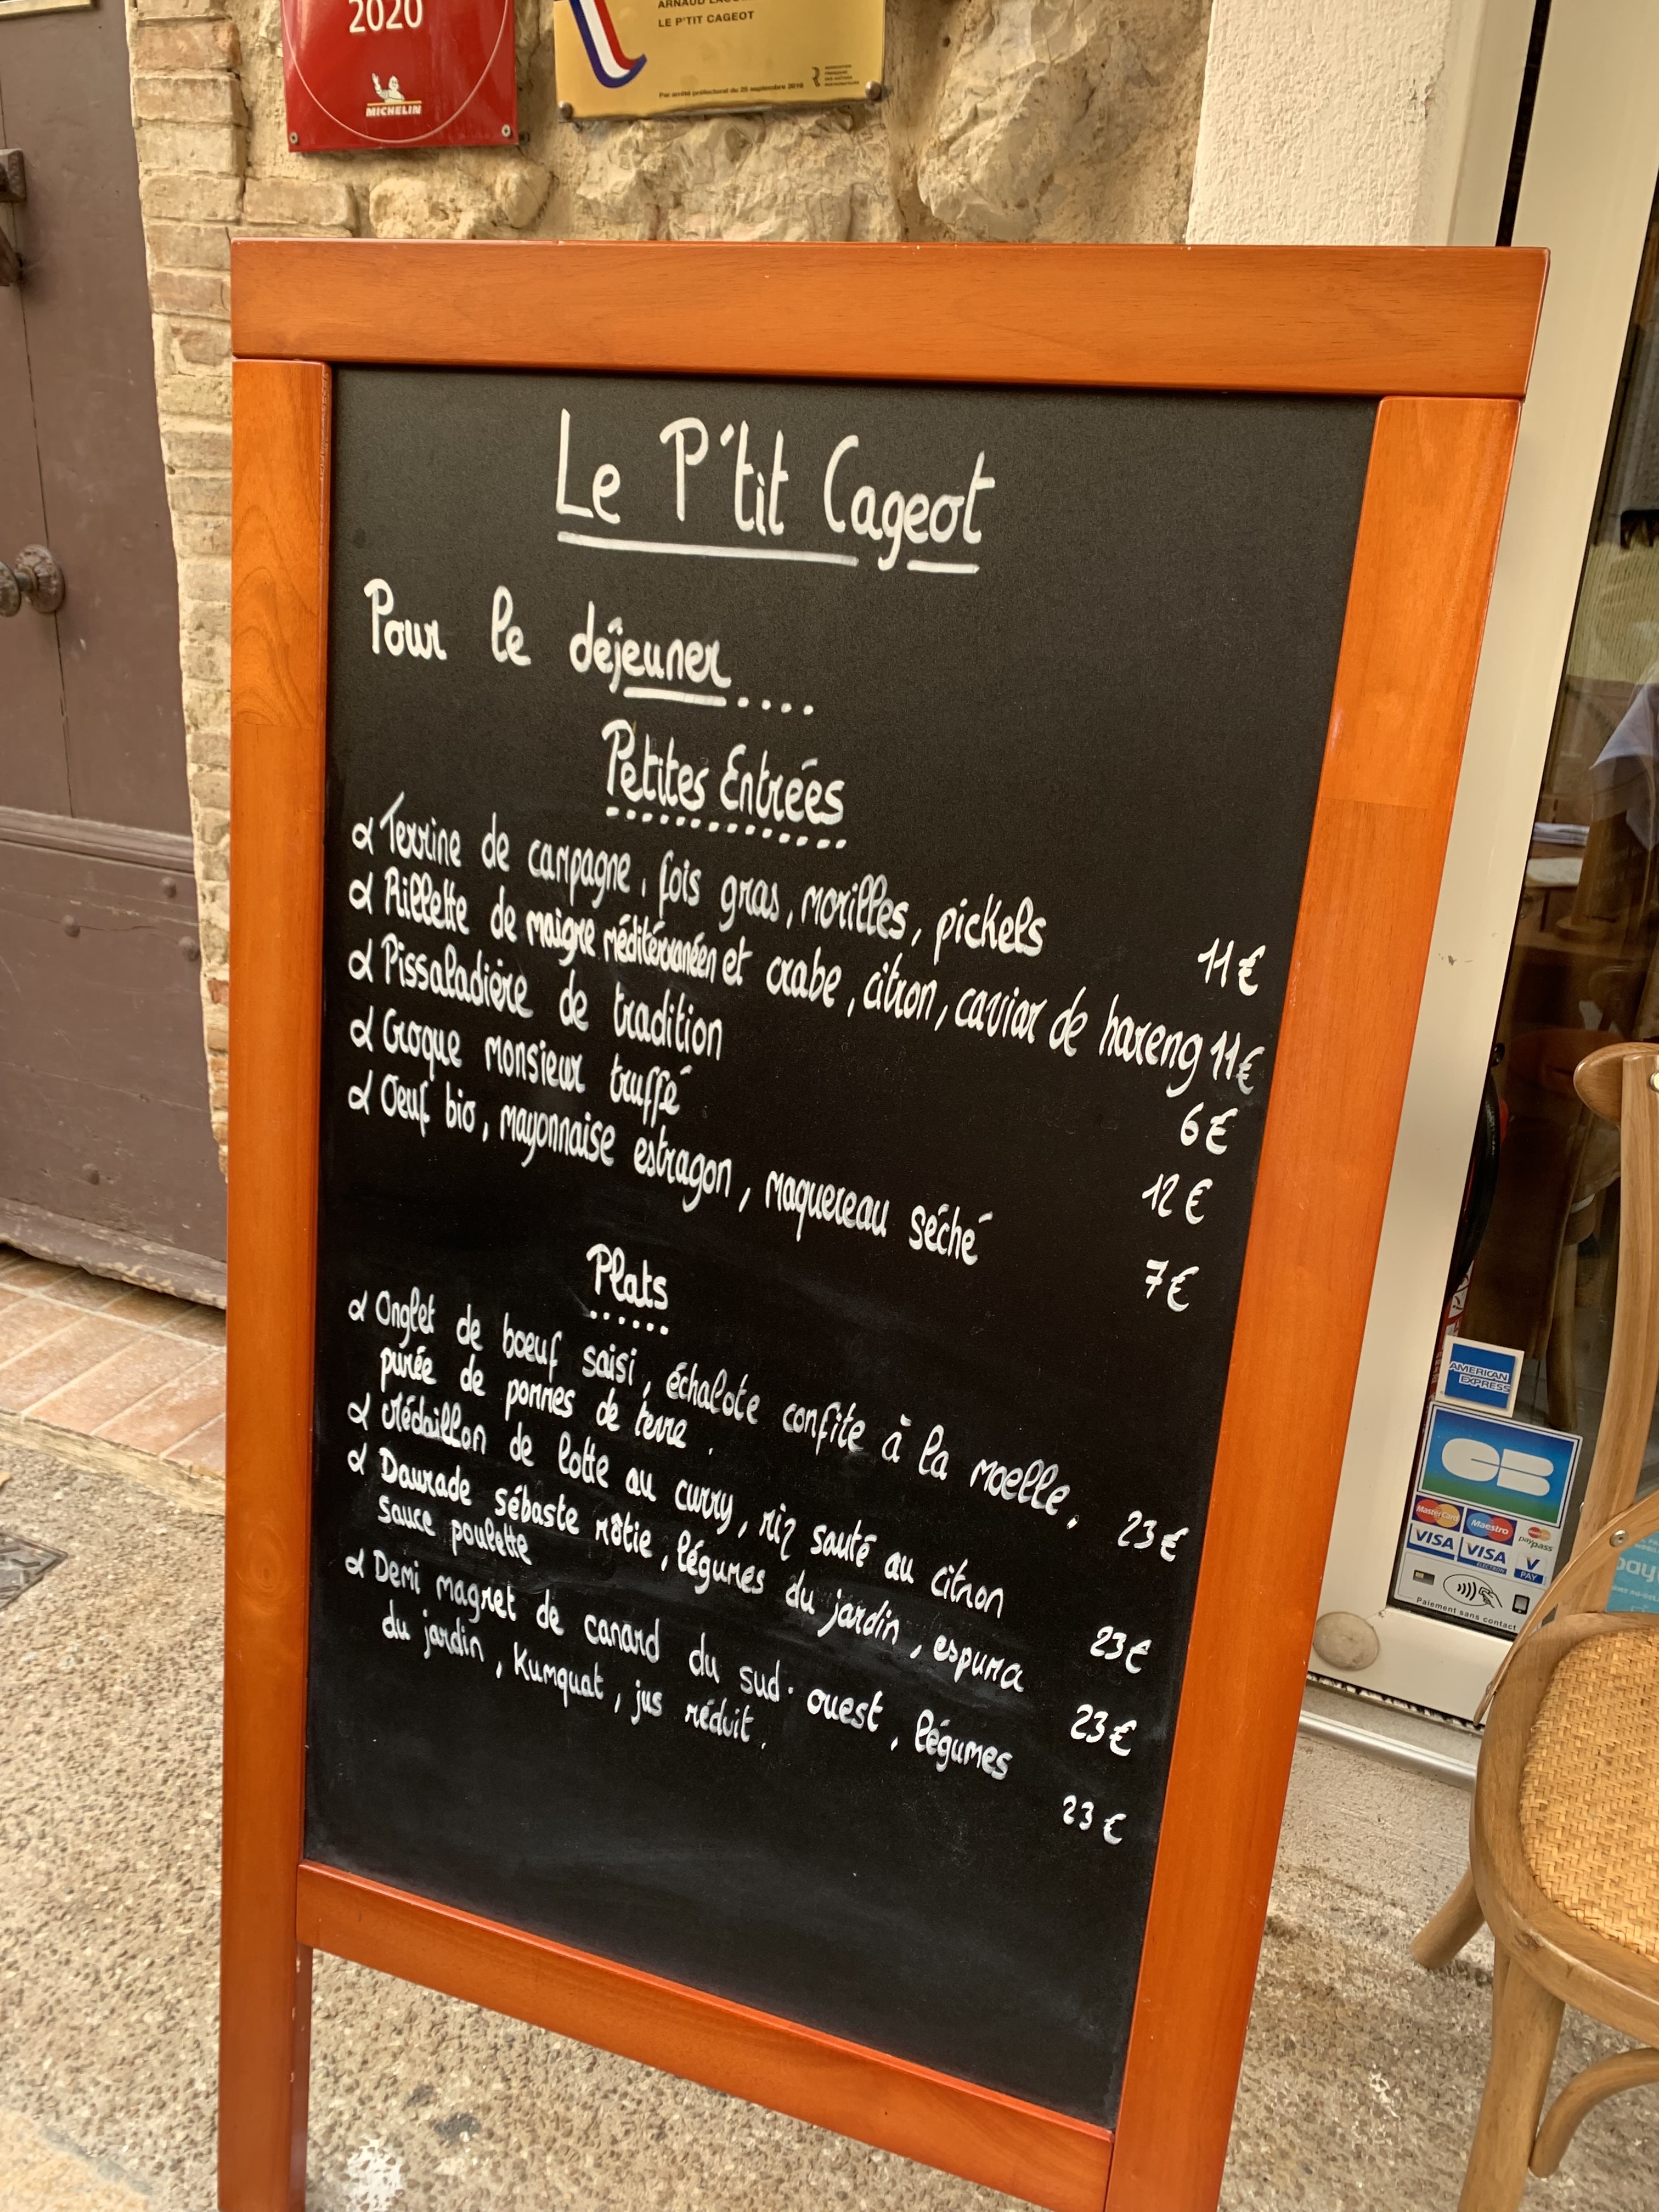 2020
MICHELIN
LE P'TIT CAGEOT
Par arrêté préfectoral du 25 septembre 2018
Le P'tit Cageot
Pour le déjeuner....
Petites Entrées
Terrine de campagne, fois gras, morilles, pickels 11€
Rillette de maigre méditérranéen et crabe, citron, caviar de hareng 11€
Pissaladière de tradition 6€
Croque monsieur truffé 12€
Oeuf bio, mayonnaise estragon, maquereau séché 7€
Plats
Onglet de boeuf saisi, échalote confite à la moelle, 23€
purée de pommes de terre.
Médaillon de lotte au curry, riz sauté au citron 23€
Daurade sébaste rôtie, légumes du jardin, espuma 23€
sauce poulette
Demi magret de canard du sud-ouest, légumes 23€
du jardin, Kumquat, jus réduit.
AMERICAN
EXPRESS
CB
MasterCard Maestro paypass
VISA VISA V
ELECTRON PAY
Paiement sans contact
pay